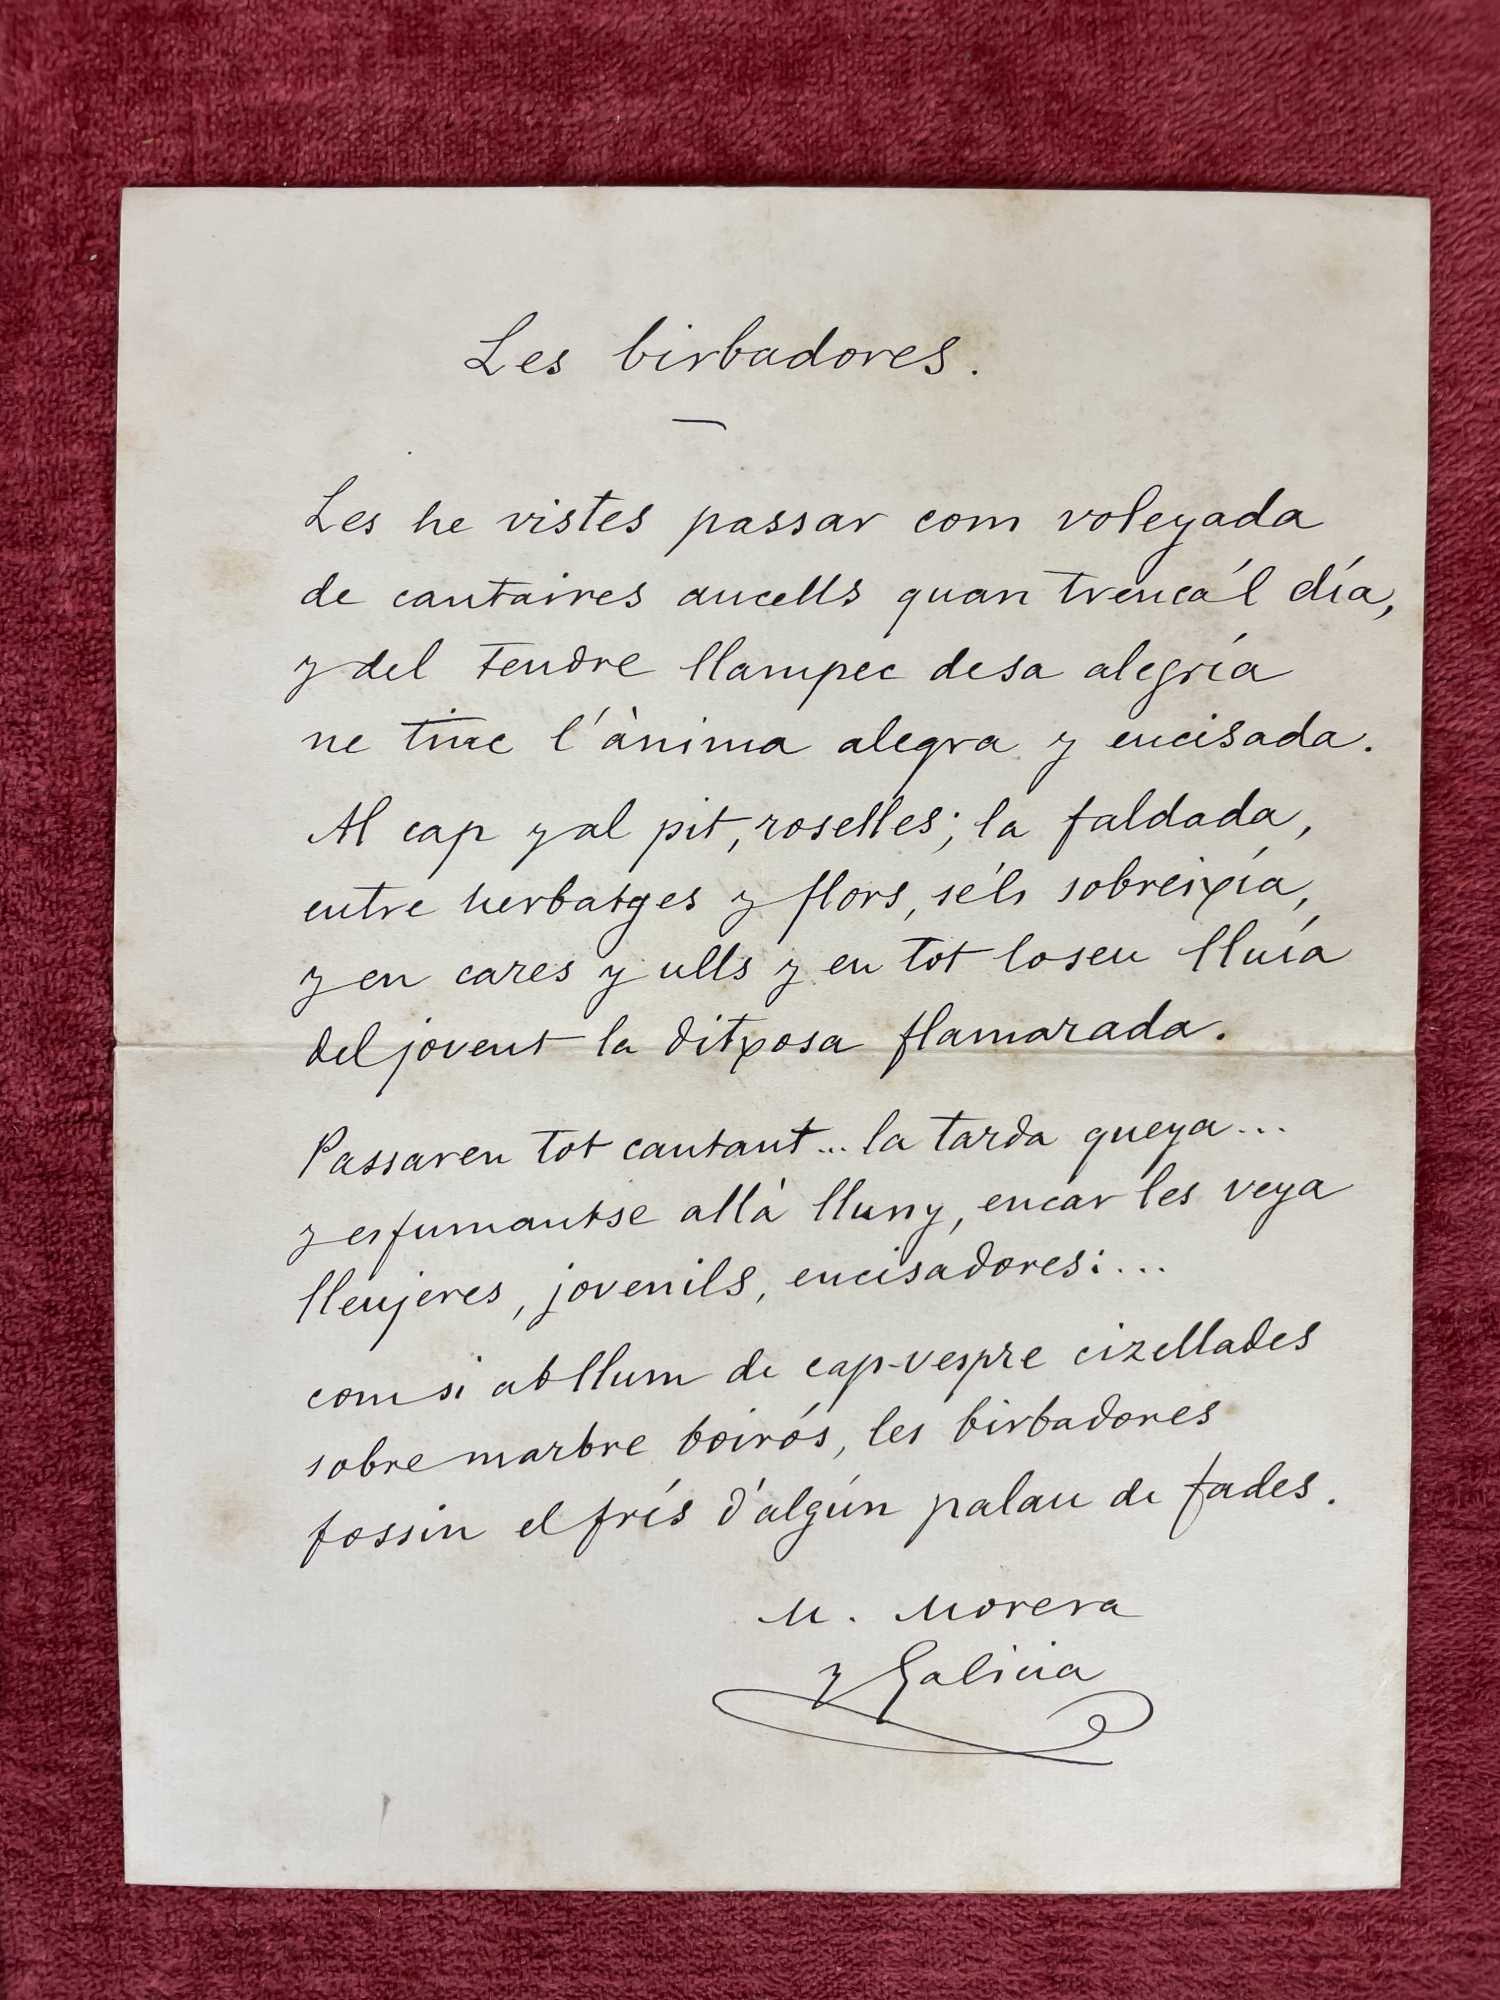 Les birbadores.
Les he vistes passar com voleyada
de cantaires aucells quan trenca'l día,
y del tendre llampec desa alegría
ne tinc l'ànima alegra y encisada.
Al cap y al pit, roselles; la faldada,
entre herbatges y flors, se'ls sobreixía,
y en cares y ulls y en tot lo seu lluía
del jovent la ditxosa flamarada.
Passaren tot cantant... la tarda queya...
y esfumantse allà lluny, encar les veya
lleujeres, jovenils, encisadores:...
com si ab llum de cap-vespre cizellades
sobre marbre boirós, les birbadores
fossin el frís d'algún palau de fades.
M. Morera
y Galicia